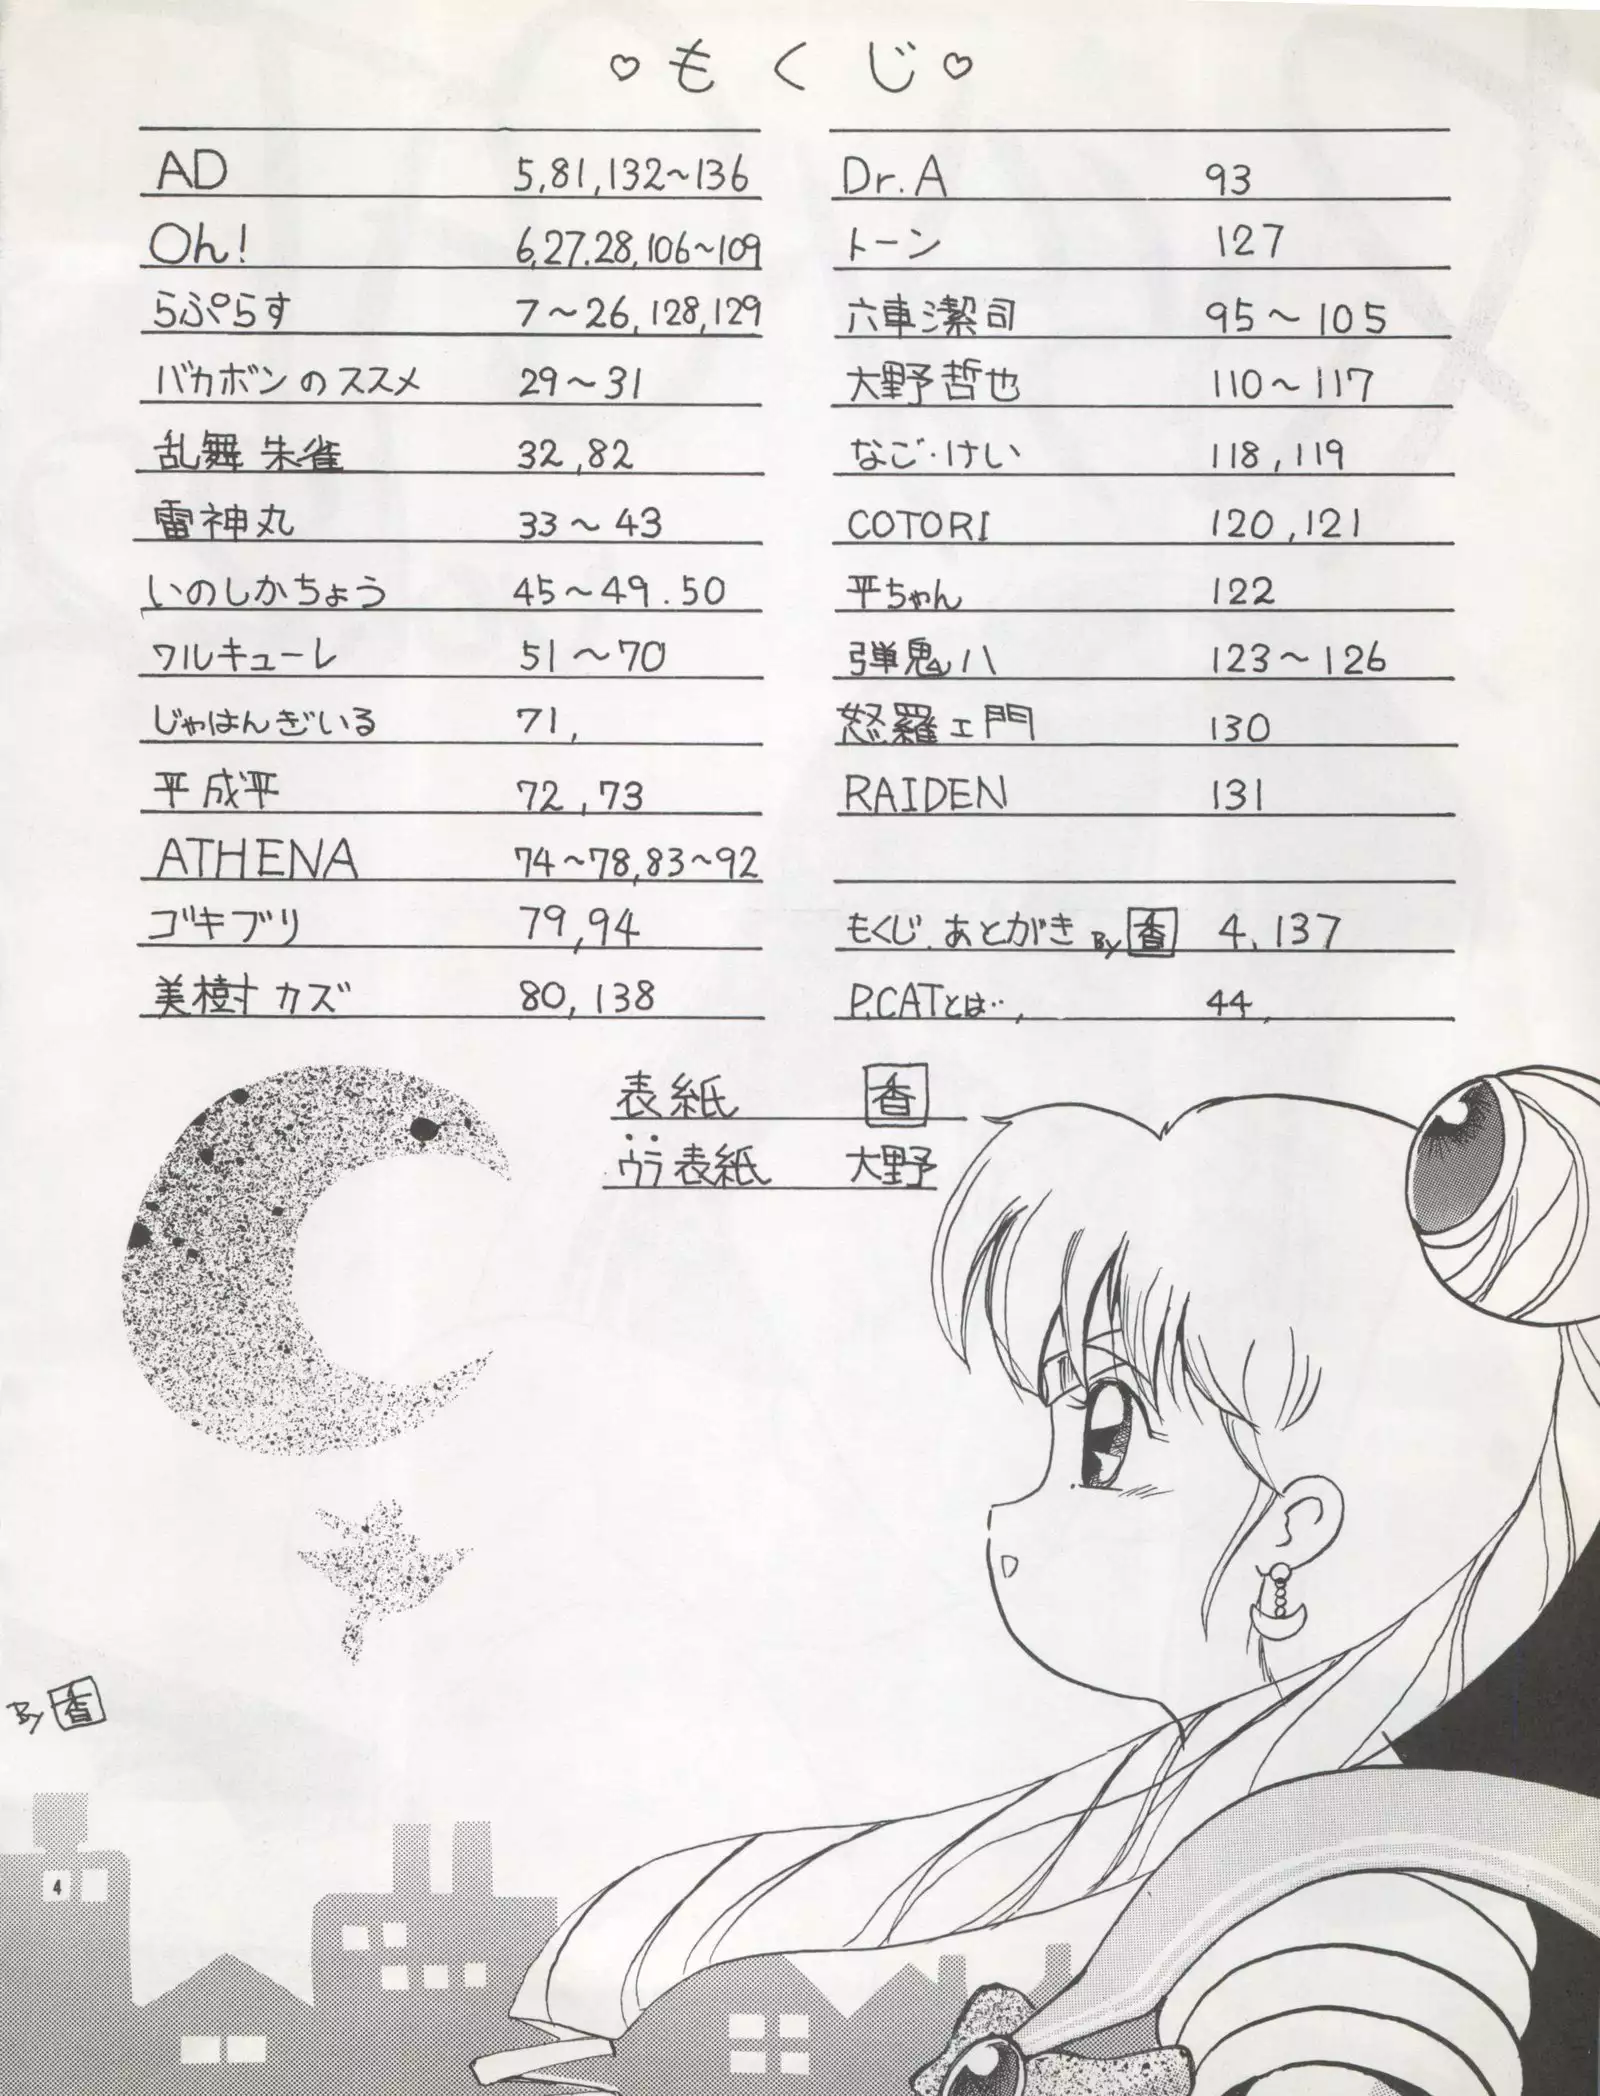 ♡もくじ♡
AD 5,81,132~136
Oh! 6,27.28,106~109
らぷらす 7~26,128,129
バカボンのススメ 29~31
乱舞 朱雀 32,82
雷神丸 33~43
いのしかちょう 45~49.50
ワルキューレ 51~70
じゃはんぎいる 71,
平成平 72,73
ATHENA 74~78,83~92
ゴキブリ 79,94
美樹カズ 80,138
Dr.A 93
トーン 127
六車潔司 95~105
大野哲也 110~117
なご・けい 118,119
COTORI 120,121
平ちゃん 122
弾鬼八 123~126
怒羅ェ門 130
RAIDEN 131
もくじ.あとがき By 香 4.137
P.CATとは‥, 44,
表紙 香
ウラ表紙 大野
By 香
4